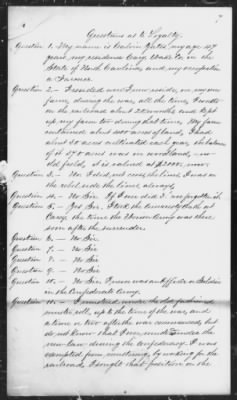 Questions as to Loyalty.
Question 1. My name is Calvin Yates, my age 47
years, my residence Cary, Wake Co, in the
State of North Carolina, and my occupation
a Farmer.
Question 2. I resided and I now reside, on my own
farm, during the war, all the time, I worked
on the railroad about 22 months and kept
up my farm too during that time. My farm
contained about 500 acres of land, I had
about 30 acres cultivated each year, the balance
of the 470 acres was in woodland, and
old field, it is valued at $2000 now.
Question 3. No I did not cross the line, I was on
the rebel side the time always.
Question 4. No Sir. If I ever did I
Question 5. Yes Sir. I took the amnesty oath at
Cary. the time the Union Army was there
soon after the surrender.
Question 6. No Sir
Question 7. No Sir
Question 8. No Sir
Question 9. No Sir
Question 10. No Sir, I never was an Officer or Soldier
in the Confederate Army.
Question 11. I mustered under the old fashioned
muster roll, up to the time of the war, and
a time or two after the war commenced, but
do not know that I ever mustered under the
new law during the Confederacy. I was
exempted from mustering, by working for the
railroad. I sought that position on the